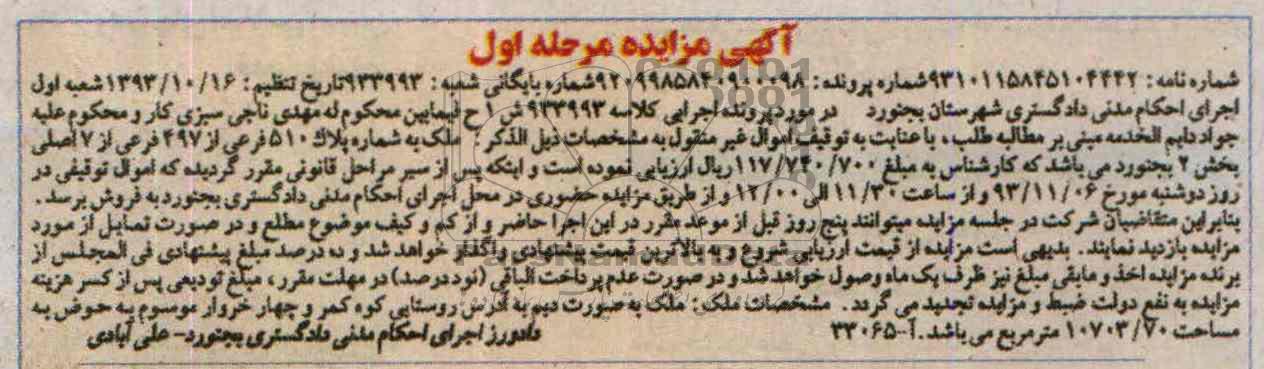 آگهی مزایده مرحله اول
شماره نامه: ۹۳۱۰۱۱۵۸۴۵۱۰۴۴۴۲ شماره پرونده: ۹۲۰۹۹۸۵۸۴۰۹۰۱۰۹۸ شماره بایگانی شعبه: ۹۳۳۹۹۳ تاریخ تنظیم: ۱۳۹۳/۱۰/۱۶ شعبه اول
اجرای احکام مدنی دادگستری شهرستان بجنورد در مورد پرونده اجرایی کلاسه ۹۳۳۹۹۳ ش ۱ ح فیمابین محکوم له مهدی ناجی سبزی کار و محکوم علیه
جواد دایم الخدمه مبنی بر مطالبه طلب، با عنایت به توقیف اموال غیر منقول به مشخصات ذیل الذکر: ملک به شماره پلاک ۵۱۰ فرعی از ۴۹۷ فرعی از ۷ اصلی
بخش ۲ بجنورد می باشد که کارشناس به مبلغ ۱۱۷/۷۴۰/۷۰۰ ریال ارزیابی نموده است و اینکه پس از سیر مراحل قانونی مقرر گردیده که اموال توقیفی در
روز دوشنبه مورخ ۹۳/۱۱/۰۶ و از ساعت ۱۱/۳۰ الی ۱۲/۰۰ و از طریق مزایده حضوری در محل اجرای احکام مدنی دادگستری بجنورد به فروش برسد.
بنابراین متقاضیان شرکت در جلسه مزایده میتوانند پنج روز قبل از موعد مقرر در این اجرا حاضر و از کم و کیف موضوع مطلع و در صورت تمایل از مورد
مزایده بازدید نمایند. بدیهی است مزایده از قیمت ارزیابی شروع و به بالاترین قیمت پیشنهادی واگذار خواهد شد و ده درصد مبلغ پیشنهادی فی المجلس از
برنده مزایده اخذ و مابقی مبلغ نیز ظرف یک ماه وصول خواهد شد و در صورت عدم پرداخت الباقی (نود درصد) در مهلت مقرر، مبلغ تودیعی پس از کسر هزینه
مزایده به نفع دولت ضبط و مزایده تجدید می گردد. مشخصات ملک: ملک به صورت دیم به آدرس روستایی کوه کمر و چهار خروار موسوم به حوض به
مساحت ۱۰۷۰۳/۷۰ مترمربع می باشد. آ-۳۳۰۶۵
دادورز اجرای احکام مدنی دادگستری بجنورد- علی آبادی